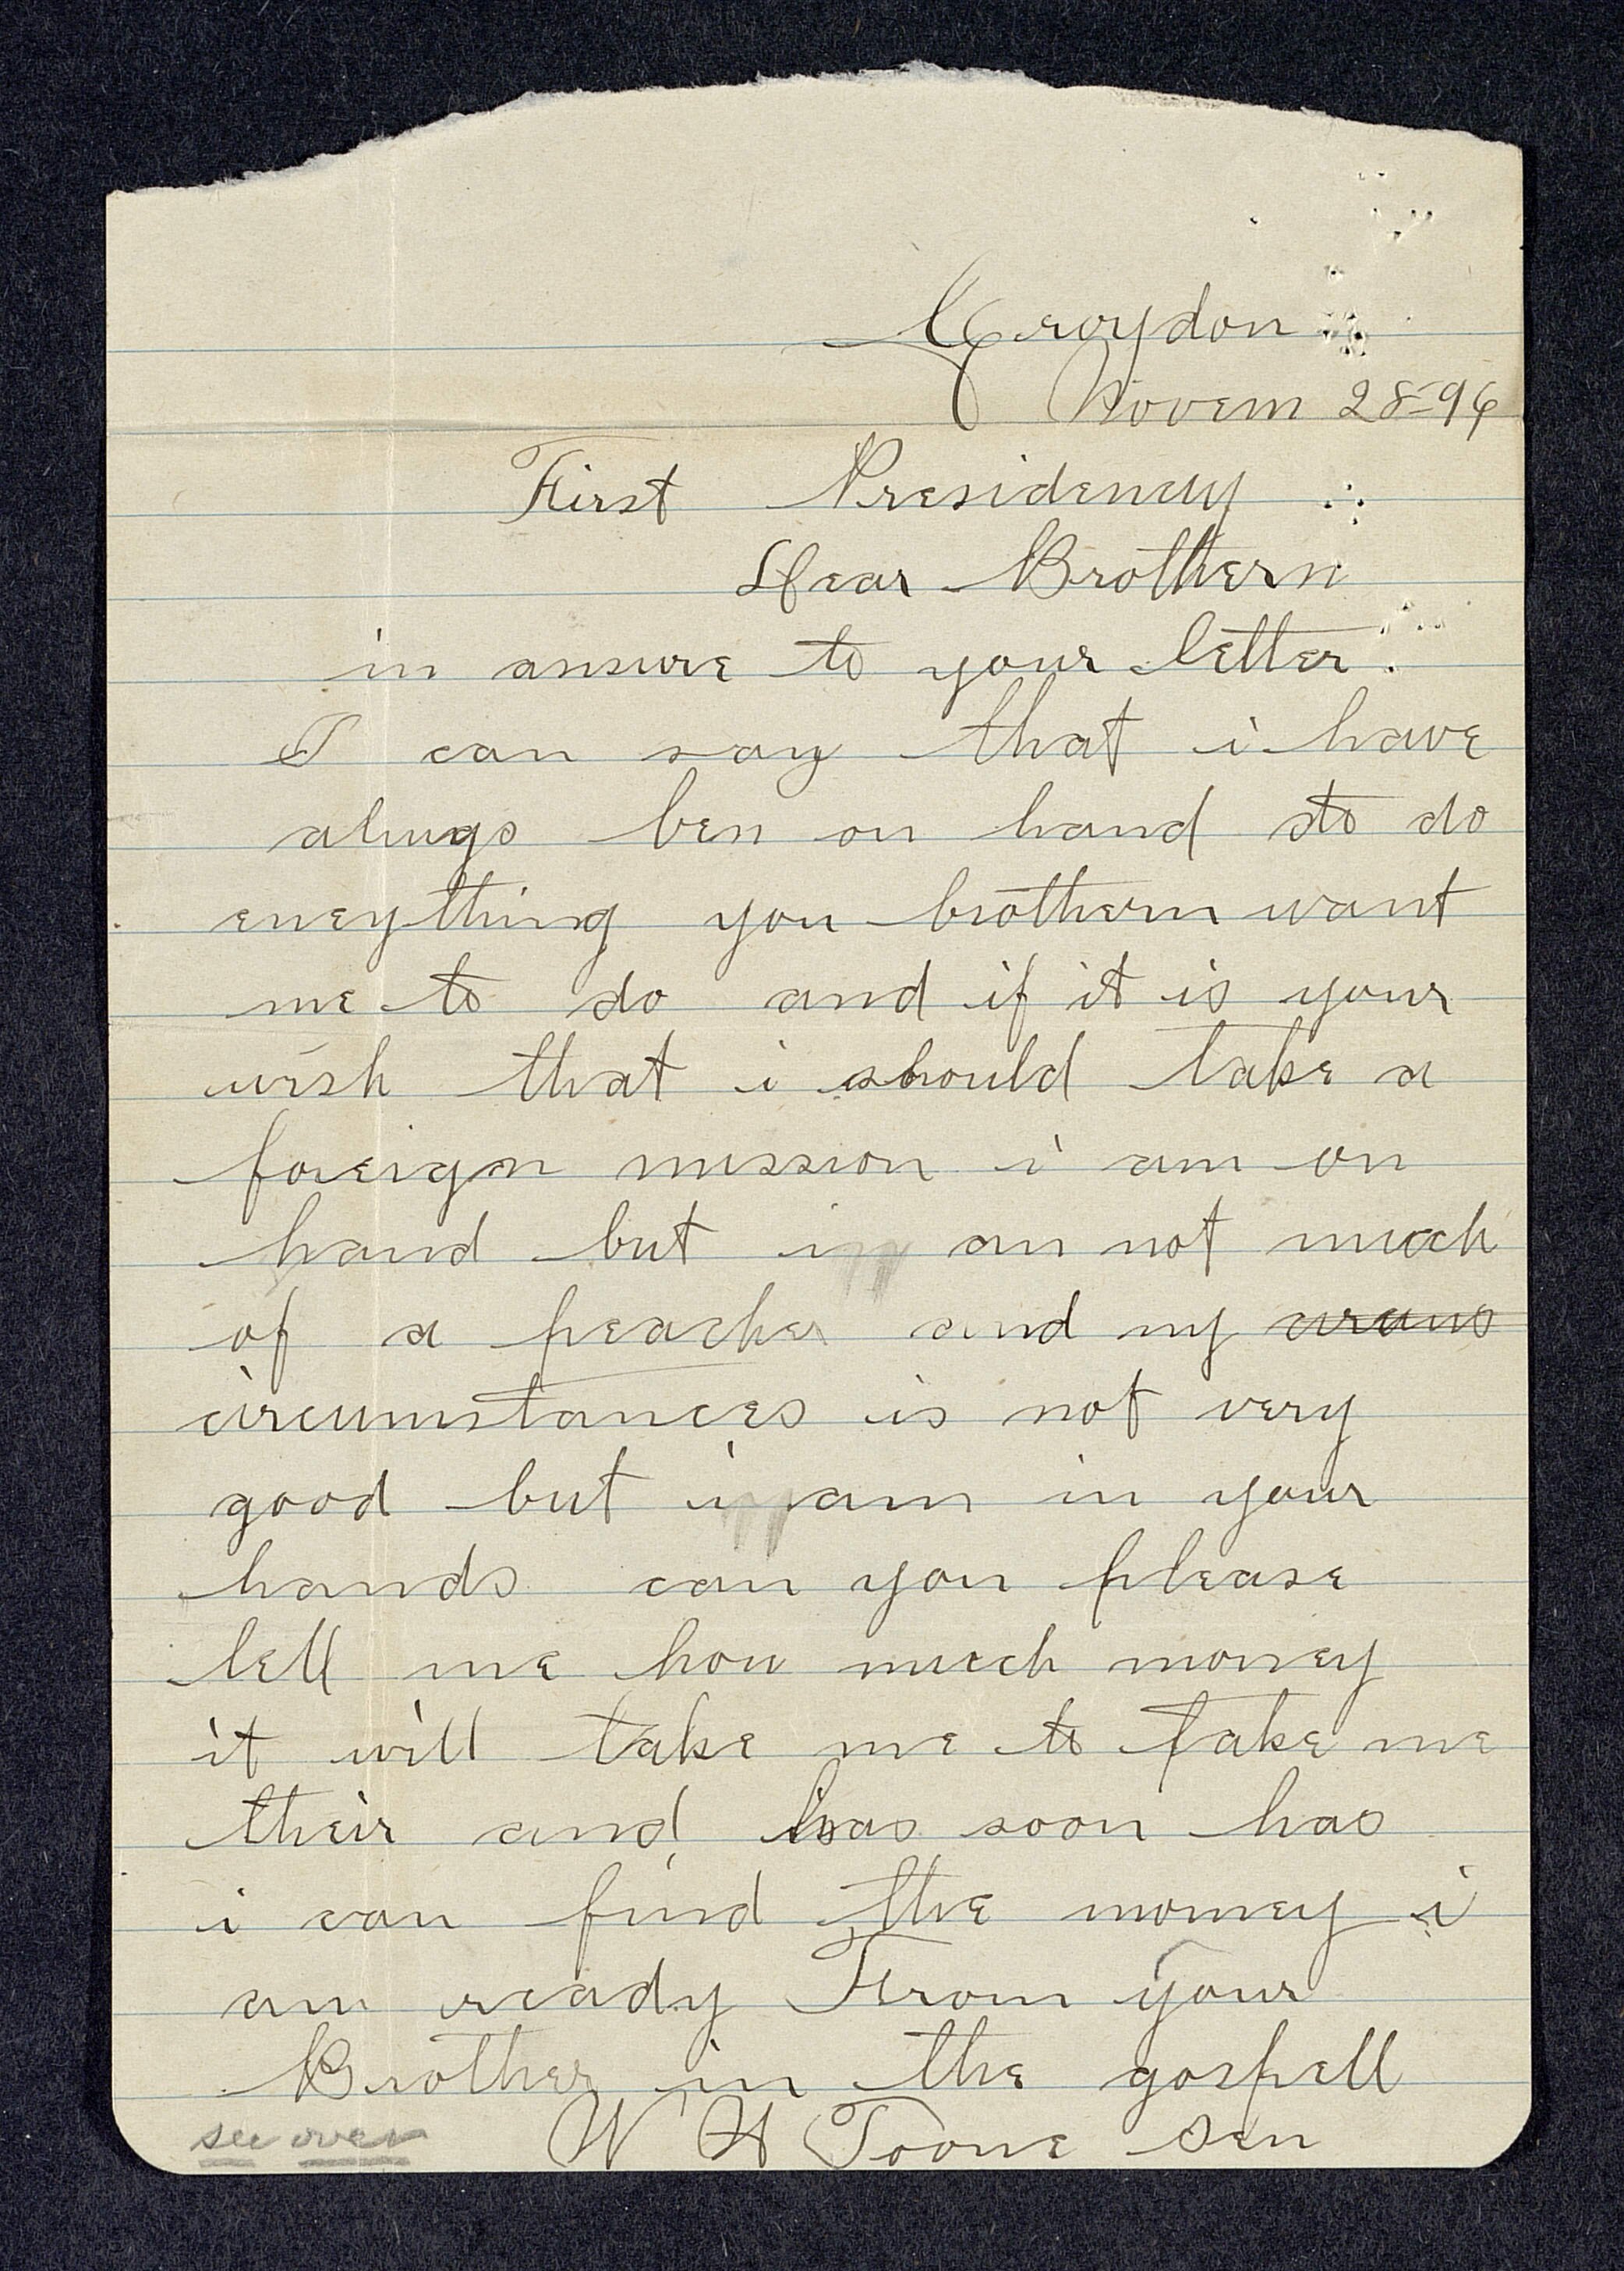 Croydon
Novem 28-96
First Presidency
Dear Brothern
in answre to your letter.
I can say that i have
always ben on hand to do
eneything you brothern want
me to do and if it is your
wish that i should take a
foreign mission i am on
hand but i am not much
of a preacher and my circums
circumstances is not very
good but i am in your
hands can you please
tell me how much money
it will take me to take me
their and has soon has
i can find the money i
am ready From your
Brother in the gospell
W H Toone Sen
see over